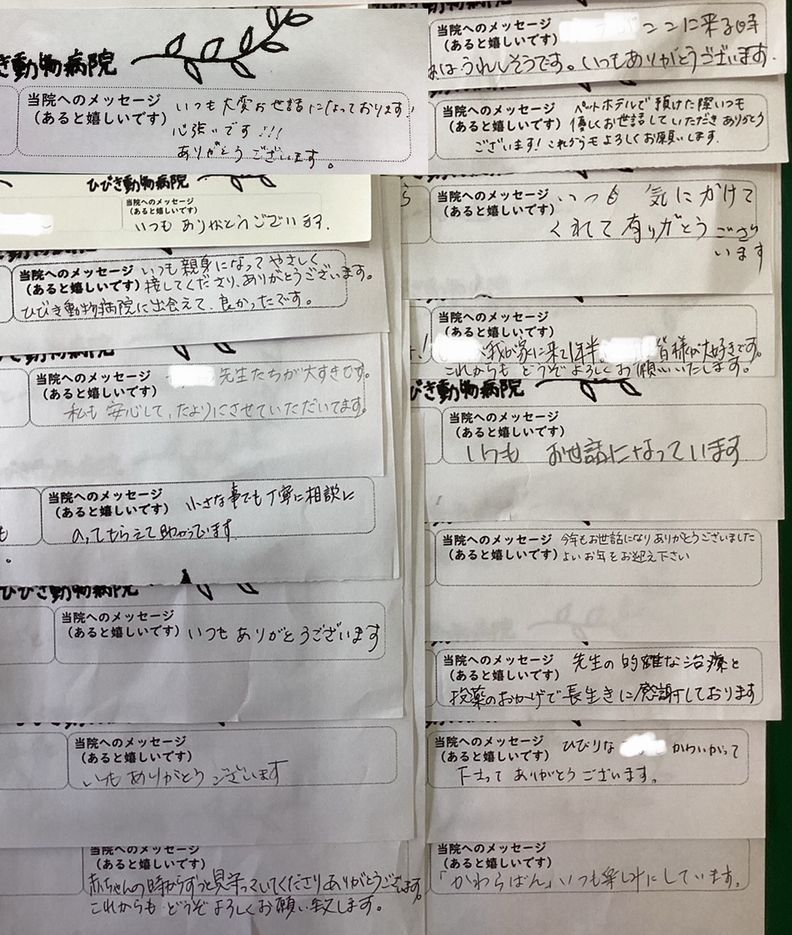 き動物病院
当院へのメッセージ
(あると嬉しいです)
いつも大変お世話になっております!
心強いです!!!
ありがとうございます。
ひびき動物病院
当院へのメッセージ
(あると嬉しいです)
いつもありがとうございます.
当院へのメッセージ
(あると嬉しいです)
いつも親身になってやさしく
接してくださり、ありがとうございます。
ひびき動物病院に出会えて、良かったです。
当院へのメッセージ
(あると嬉しいです)
先生たちが大すきです。
私も安心して、たよりにさせていただいてます。
当院へのメッセージ
(あると嬉しいです)
小さな事でも丁寧に相談に
のってもらえて助かっています
も
ひびき動物病院
当院へのメッセージ
(あると嬉しいです)
いつもありがとうございます
当院へのメッセージ
(あると嬉しいです)
いつもありがとうございます
当院へのメッセージ
(あると嬉しいです)
赤ちゃんの時からずっと見守っていてくださりありがとうございます。
これからもどうぞよろしくお願い致します。
当院へのメッセージ
(あると嬉しいです)
ンに来る時
はうれしそうです。いつもありがとうございます.
当院へのメッセージ
(あると嬉しいです)
ペットホテルで預けた際いつも
優しくお世話していただきありがとう
ございます!これからもよろしくお願いします.
当院へのメッセージ
(あると嬉しいです)
いつも気にかけて
くれて有りがとうござ
います
当院へのメッセージ
(あると嬉しいです)
我が家に来て1年半、
皆様が大好きです。
これからもどうぞよろしくお願いいたします。
びき動物病院
当院へのメッセージ
(あると嬉しいです)
いつもお世話になっています
当院へのメッセージ
(あると嬉しいです)
今年もお世話になりありがとうございました
よいお年をお迎え下さい
当院へのメッセージ
(あると嬉しいです)
先生の的確な治療と
投薬のおかげで長生きに感謝しております
当院へのメッセージ
(あると嬉しいです)
びびりな
かわいがって
下さってありがとうございます。
当院へのメッセージ
(あると嬉しいです)
「かわらばん」いつも楽しみにしています。